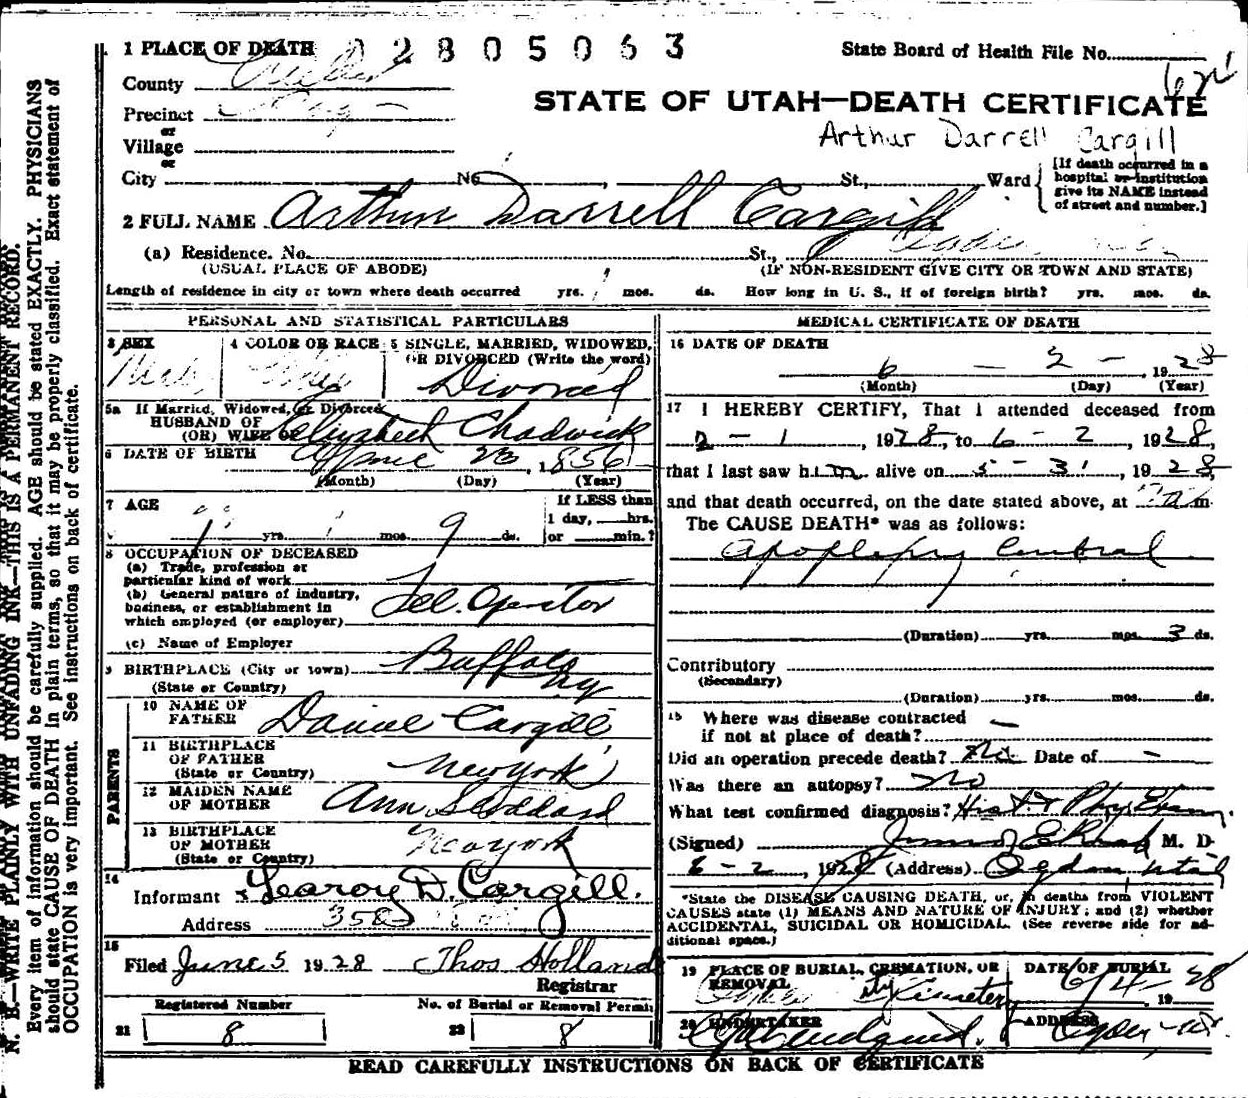 1 PLACE OF DEATH 02805063 State Board of Health File No.
County Weber
Precinct
or
Village
or
City No. , St., Ward
STATE OF UTAH—DEATH CERTIFICATE
Arthur Darrell Cargill
[If death occurred in a
hospital or institution
give its NAME instead
of street and number.]
2 FULL NAME Arthur Darrell Cargill
(a) Residence. No. St.,
(USUAL PLACE OF ABODE) (IF NON-RESIDENT GIVE CITY OR TOWN AND STATE)
Length of residence in city or town where death occurred yrs. mos. ds. How long in U. S., if of foreign birth? yrs. mos. ds.
PERSONAL AND STATISTICAL PARTICULARS
3 SEX 4 COLOR OR RACE 5 SINGLE, MARRIED, WIDOWED,
OR DIVORCED (Write the word)
Male Divorced
5a If Married, Widowed, or Divorced
HUSBAND OF
(OR) WIFE OF Elizabeth Chadwick
6 DATE OF BIRTH April 23, 1856
(Month) (Day) (Year)
7 AGE If LESS than
1 day, hrs.
yrs. mos. 9 ds. or min.?
8 OCCUPATION OF DECEASED
(a) Trade, profession or
particular kind of work
(b) General nature of industry,
business, or establishment in
which employed (or employer) Tel. Operator
(c) Name of Employer
9 BIRTHPLACE (City or town) Buffalo
(State or Country) NY
PARENTS
10 NAME OF
FATHER Daniel Cargill
11 BIRTHPLACE
OF FATHER
(State or Country) New York
12 MAIDEN NAME
OF MOTHER Ann Stoddard
13 BIRTHPLACE
OF MOTHER
(State or Country) New York
14
Informant Learoy D. Cargill.
Address
15
Filed June 5 1928 Thos Holland
Registrar
Registered Number No. of Burial or Removal Permit
21 8 22 8
MEDICAL CERTIFICATE OF DEATH
16 DATE OF DEATH
6 - 2 - , 1928
(Month) (Day) (Year)
17 I HEREBY CERTIFY, That I attended deceased from
2 - 1, 1928, to 6 - 2, 1928,
that I last saw him alive on 5 - 31, 1928,
and that death occurred, on the date stated above, at m.
The CAUSE DEATH* was as follows:
Apoplexy Central
(Duration) yrs. mos. 3 ds.
Contributory
(Secondary)
(Duration) yrs. mos. ds.
18 Where was disease contracted
if not at place of death? —
Did an operation precede death? No Date of —
Was there an autopsy? No
What test confirmed diagnosis? Hist. & Phy. Exam.
(Signed) M. D.
6 - 2, 1928 (Address) Ogden Utah
*State the DISEASE CAUSING DEATH, or, in deaths from VIOLENT
CAUSES state (1) MEANS AND NATURE OF INJURY; and (2) whether
ACCIDENTAL, SUICIDAL OR HOMICIDAL. (See reverse side for ad-
ditional space.)
19 PLACE OF BURIAL, CREMATION, OR
REMOVAL City Cemetery
DATE OF BURIAL
6/4 - 1928
20 UNDERTAKER
ADDRESS
Ogden - Ut.
READ CAREFULLY INSTRUCTIONS ON BACK OF CERTIFICATE
N. B.—WRITE PLAINLY WITH UNFADING INK—THIS IS A PERMANENT RECORD.
Every item of information should be carefully supplied. AGE should be stated EXACTLY. PHYSICIANS
should state CAUSE OF DEATH in plain terms, so that it may be properly classified. Exact statement of
OCCUPATION is very important. See instructions on back of certificate.